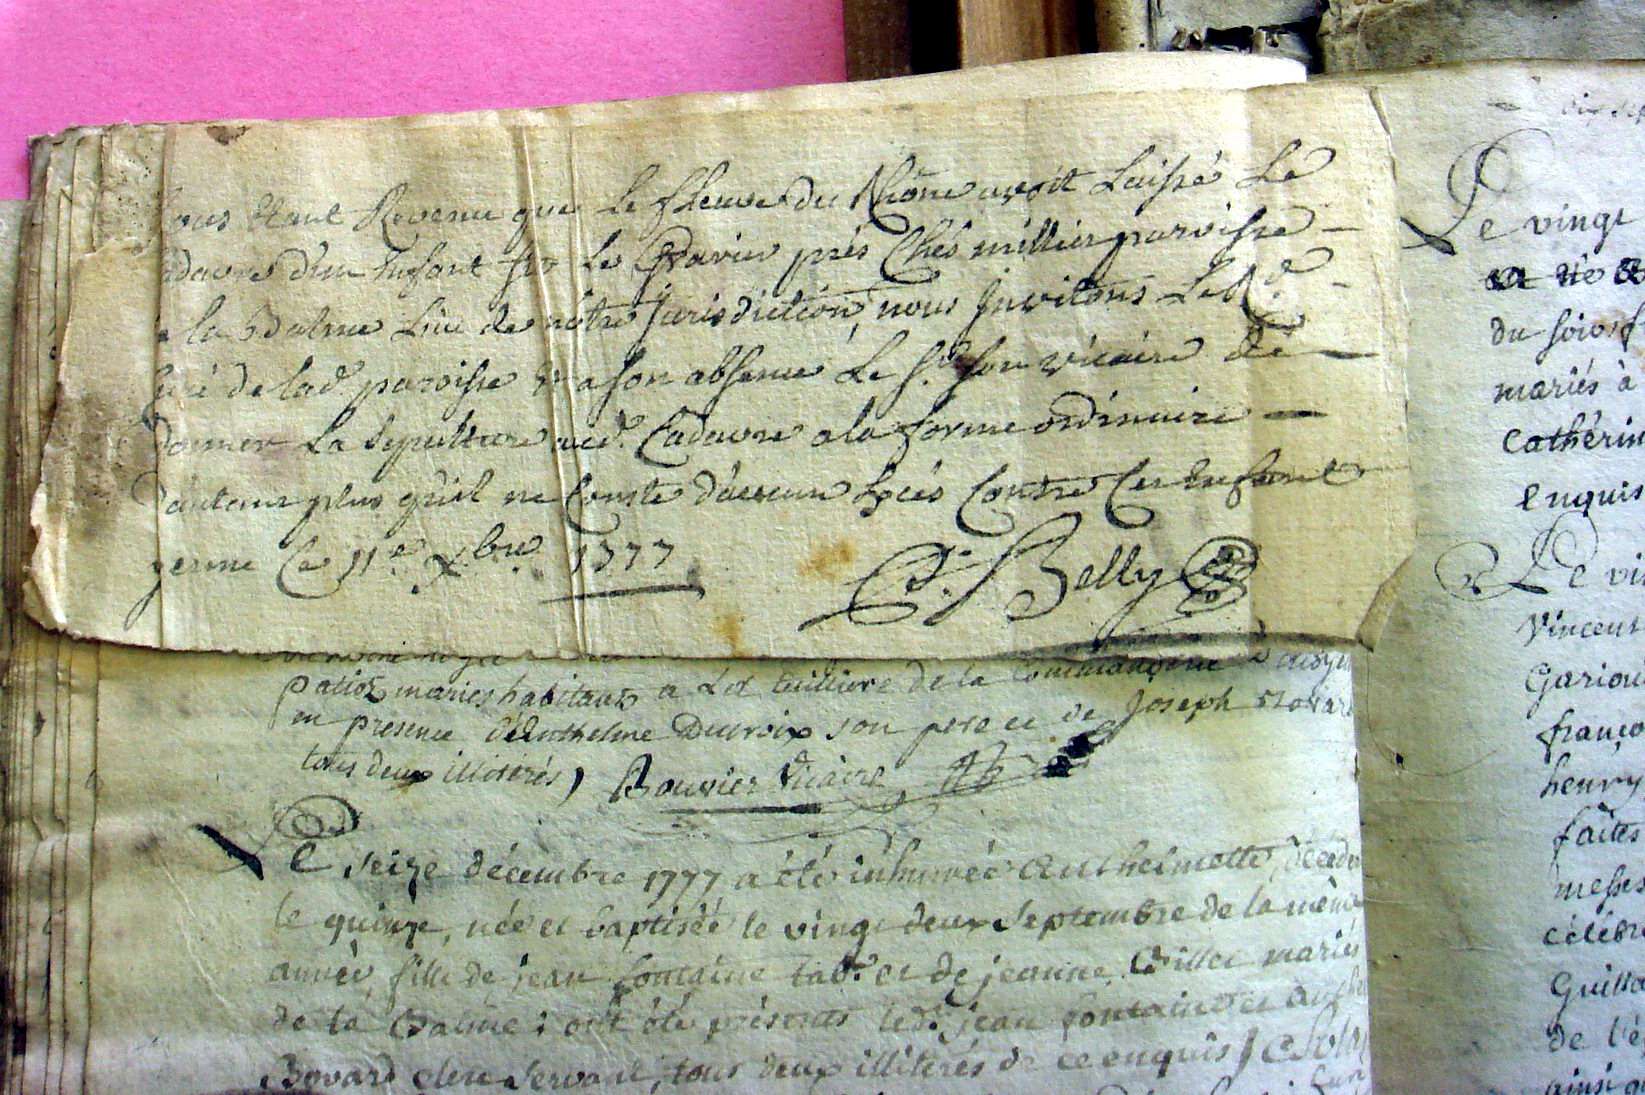 nous étant Revenu que le fleuve du Rhône avoit Laissé Le
cadavre d'un Enfant sur Le Gravier près Chés millier paroisse
de la Balme Lieu de nôtre Jurisdiction, nous Invitons Le Rd
curé de lad. paroisse Et a son absence Le Sr. son vicaire De
donner La Sepulture aud. Cadavre a la forme ordinaire
d'autant plus qu'il ne Conste d'aucun Excès Contre Cet Enfant
yenne Ce 11e Xbre 1777
Belly
mariés habitants a La tuilliere de la Commanderie
en presence d'Anthelme Ducroix son pere et de Joseph
tous deux illiterés) Bouvier Vicaire
Le seize décembre 1777 a été inhumée Anthelmette, décédée
le quinze, née et baptisée le vingt deux Septembre de la même
année, fille de jean fontaine Lab.r et de jeanne Gillet mariés
de la Balme : ont été présents led.t jean fontaine et
Bovard clerc Servant, tous deux illiterés de ce enquis)
Le vingt
du soir
mariés à
Catherin
enquis
Le vin
Vincent
franço
henry
faites
messes
célébr
de l'é
ainsi q